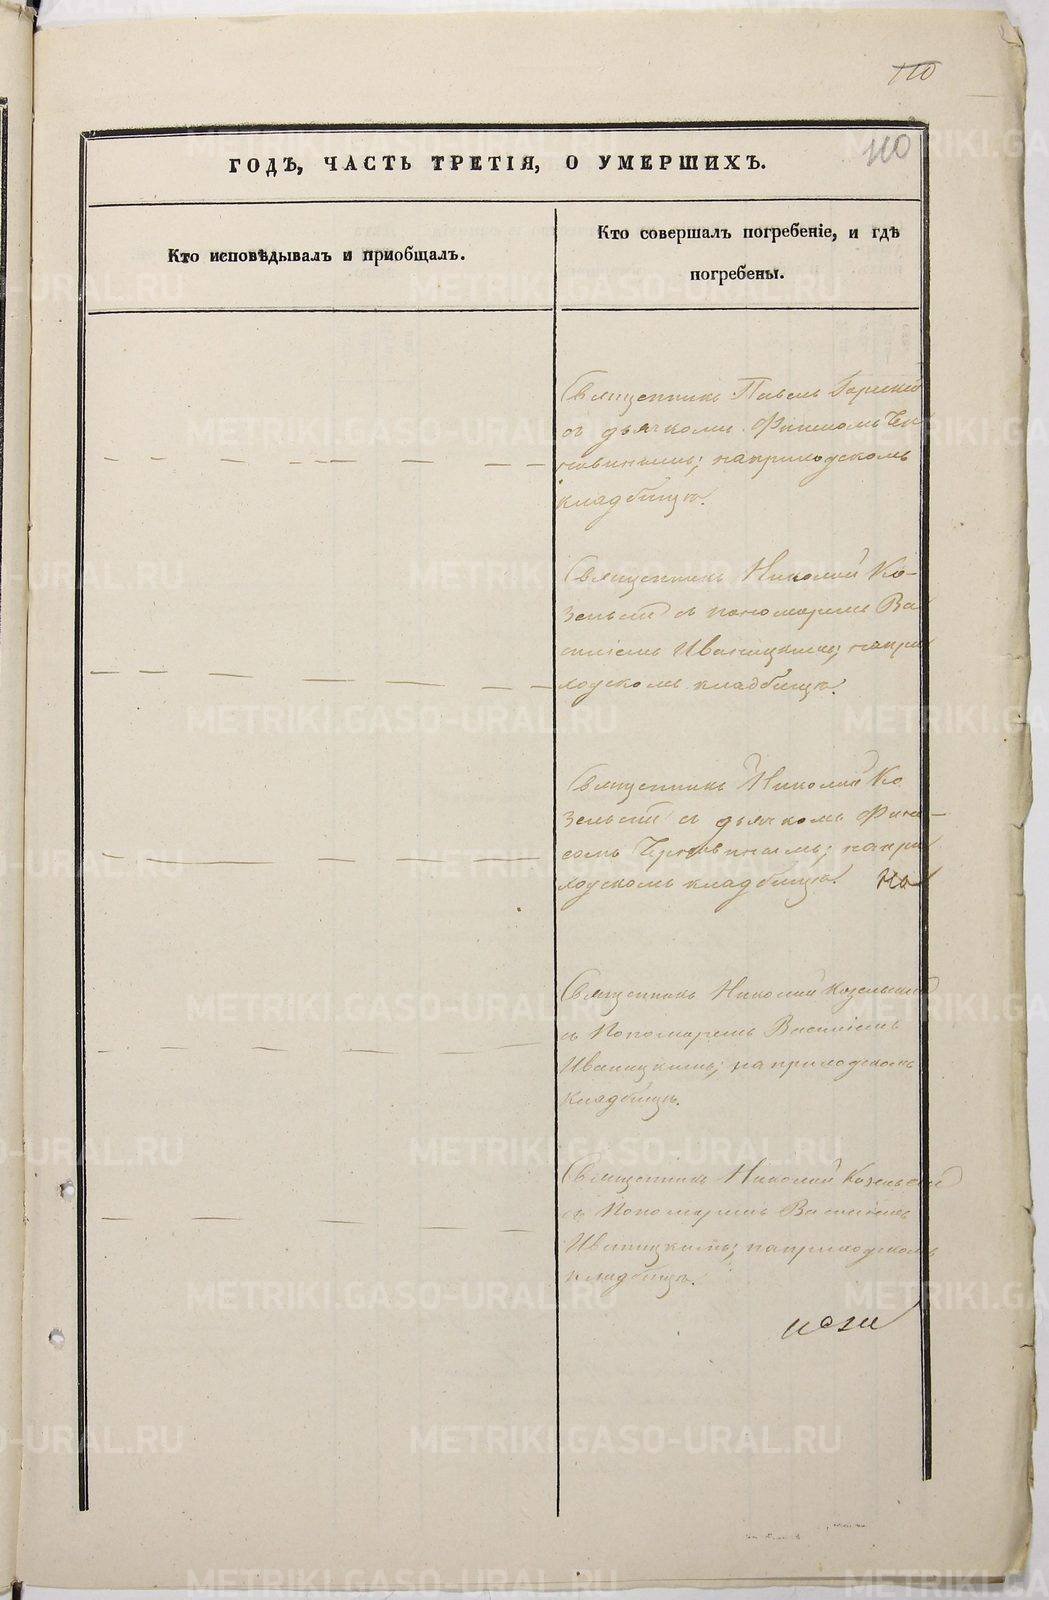 110
110
ГОДЪ, ЧАСТЬ ТРЕТІЯ, О УМЕРШИХЪ.
Кто исповѣдывалъ и пріобщалъ.
Кто совершалъ погребеніе, и гдѣ
погребены.
Священникъ Павелъ
съ дьячкомъ
на приходскомъ
кладбищѣ.
Священникъ Николай Ко-
зельскій съ пономаремъ Ва
силіемъ Иваницкимъ; на при
ходскомъ кладбищѣ.
Священникъ Николай Ко
зельскій съ дьячкомъ
на при
ходскомъ кладбищѣ.
Священникъ Николай Козельскій
съ Пономаремъ Василіемъ
Иваницкимъ; на приходскомъ
кладбищѣ.
Священникъ Николай Козельскій
съ Пономаремъ Василіемъ
Иваницкимъ; на приходскомъ
кладбищѣ.
METRIKI.GASO-URAL.RU